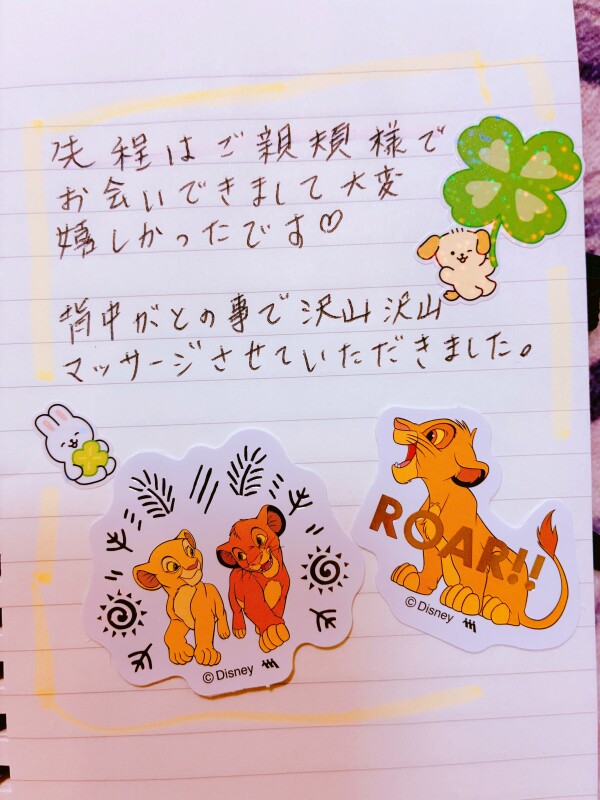 先程はご親頼様で
お会いできまして大変
嬉しかったです♡
背中がとの事で沢山沢山
マッサージさせていただきました。
ROAR!!
©Disney
©Disney